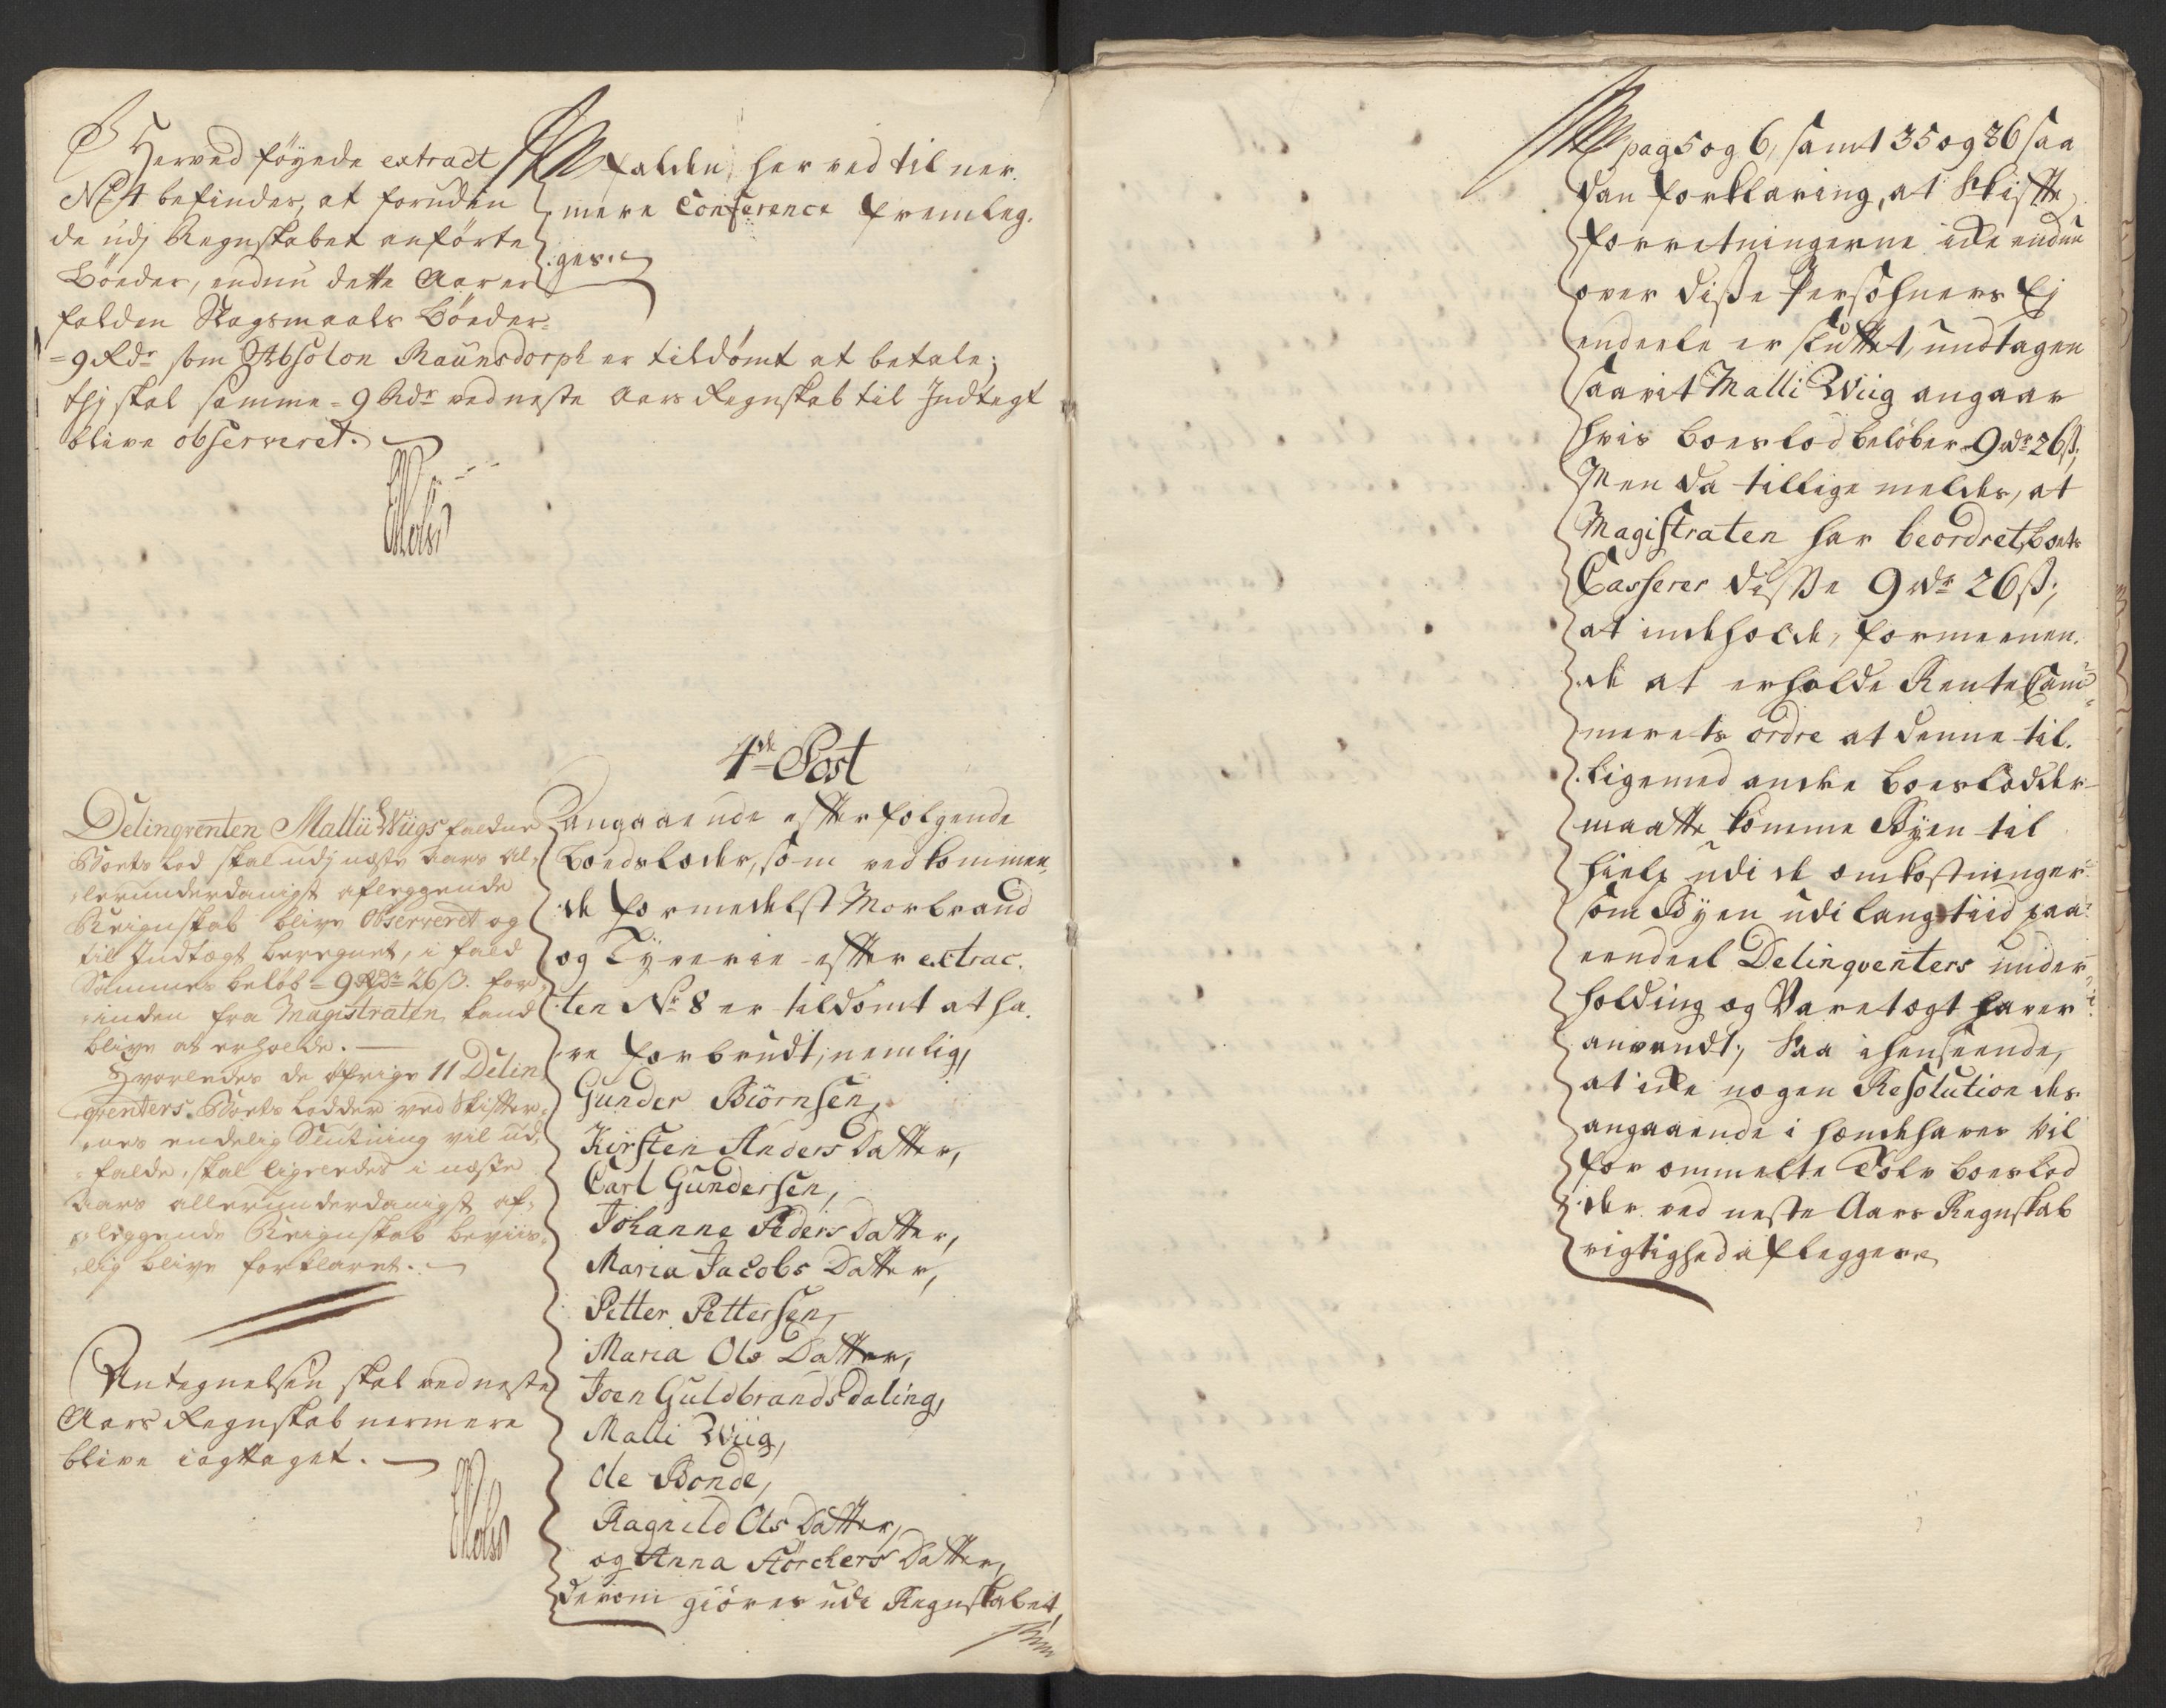 Herved föÿede extract
No 4 befindes, at foruden
de udj Regnskabet anförte
Böeder, endnu dette Aar er
falden Slagsmaals Böeder
= 9 Rdr som Absolon Raunsdorph er tildömt at betale;
thj skal samme = 9 Rdr ved neste Aars Regnskab til Indtegt
blive observeret.
falden, her ved til ner-
mere Conference fremleg-
ges.
4de Post
Delinqventen Mallii Wiigs faldne
Boets Lod skal udj næste Aars al-
lerunderdanigst aflæggende
Reignskab blive observeret og
til Indtægt beregnet, i fald
Sammes beløb = 9 Rdr 26 ß. for-
inden fra Magistraten kand
blive at erholde.
Hvorledes de øfrige 11 Delin-
qventers Boets Lodder ved Skifter-
nes endelig Slutning vil ud-
falde, skal ligeledes i næste
Aars allerunderdanigst af-
læggende Reignskab beviis-
lig blive forklaret.
Antegnelsen skal ved neste
Aars Regnskab nermere
blive iagttaget.
angaaende efterfölgende
Boedsloder, som vedkommen-
de formedelst Morbrand
og Tÿverie efter extrac-
ten No 8 er tildömt at ha-
ve forbrudt, nemlig,
Gunder Biörnsen,
Kirsten Anders Datter,
Carl Gundersen,
Johanne Peders Datter,
Maria Jacobs Datter,
Petter Pettersen,
Maria Ols Datter,
Joen Guldbrandsdaling,
Malli Wiig,
Ole Bonde,
Ragnild Ols Datter,
og Anna Störckers Datter,
derom giöres udi Regnskabet
pag 5 og 6, samt 35 og 36 saa
dan forklaring, at Skifte
forretningerne icke endnu
over disse Persohners Ej
endeele er sluttet, undtagen
saavit Malli Wiig angaar
hvis boeslod belöber 9 rdr 26 ß,
Men da tillige meldes, at
Magistraten har beordret Boets
Casserer disse 9 rdr 26 ß,
at indeholde, formeenen-
de at erholde Rente Cam-
merets ordre at denne til-
ligemed andre boeslodder
maatte komme Bÿen til
hielp udi de omkostninger
som Bÿen udi lang tiid paa
eendeel Delinqventers under-
holding og Varetægt haver
anvendt; Saa i henseende,
at icke nogen Resolution des-
angaaende i hænde haves vil
for ommelte Tolv boeslod
der ved neste Aars Regnskab
rigtighed aflegges